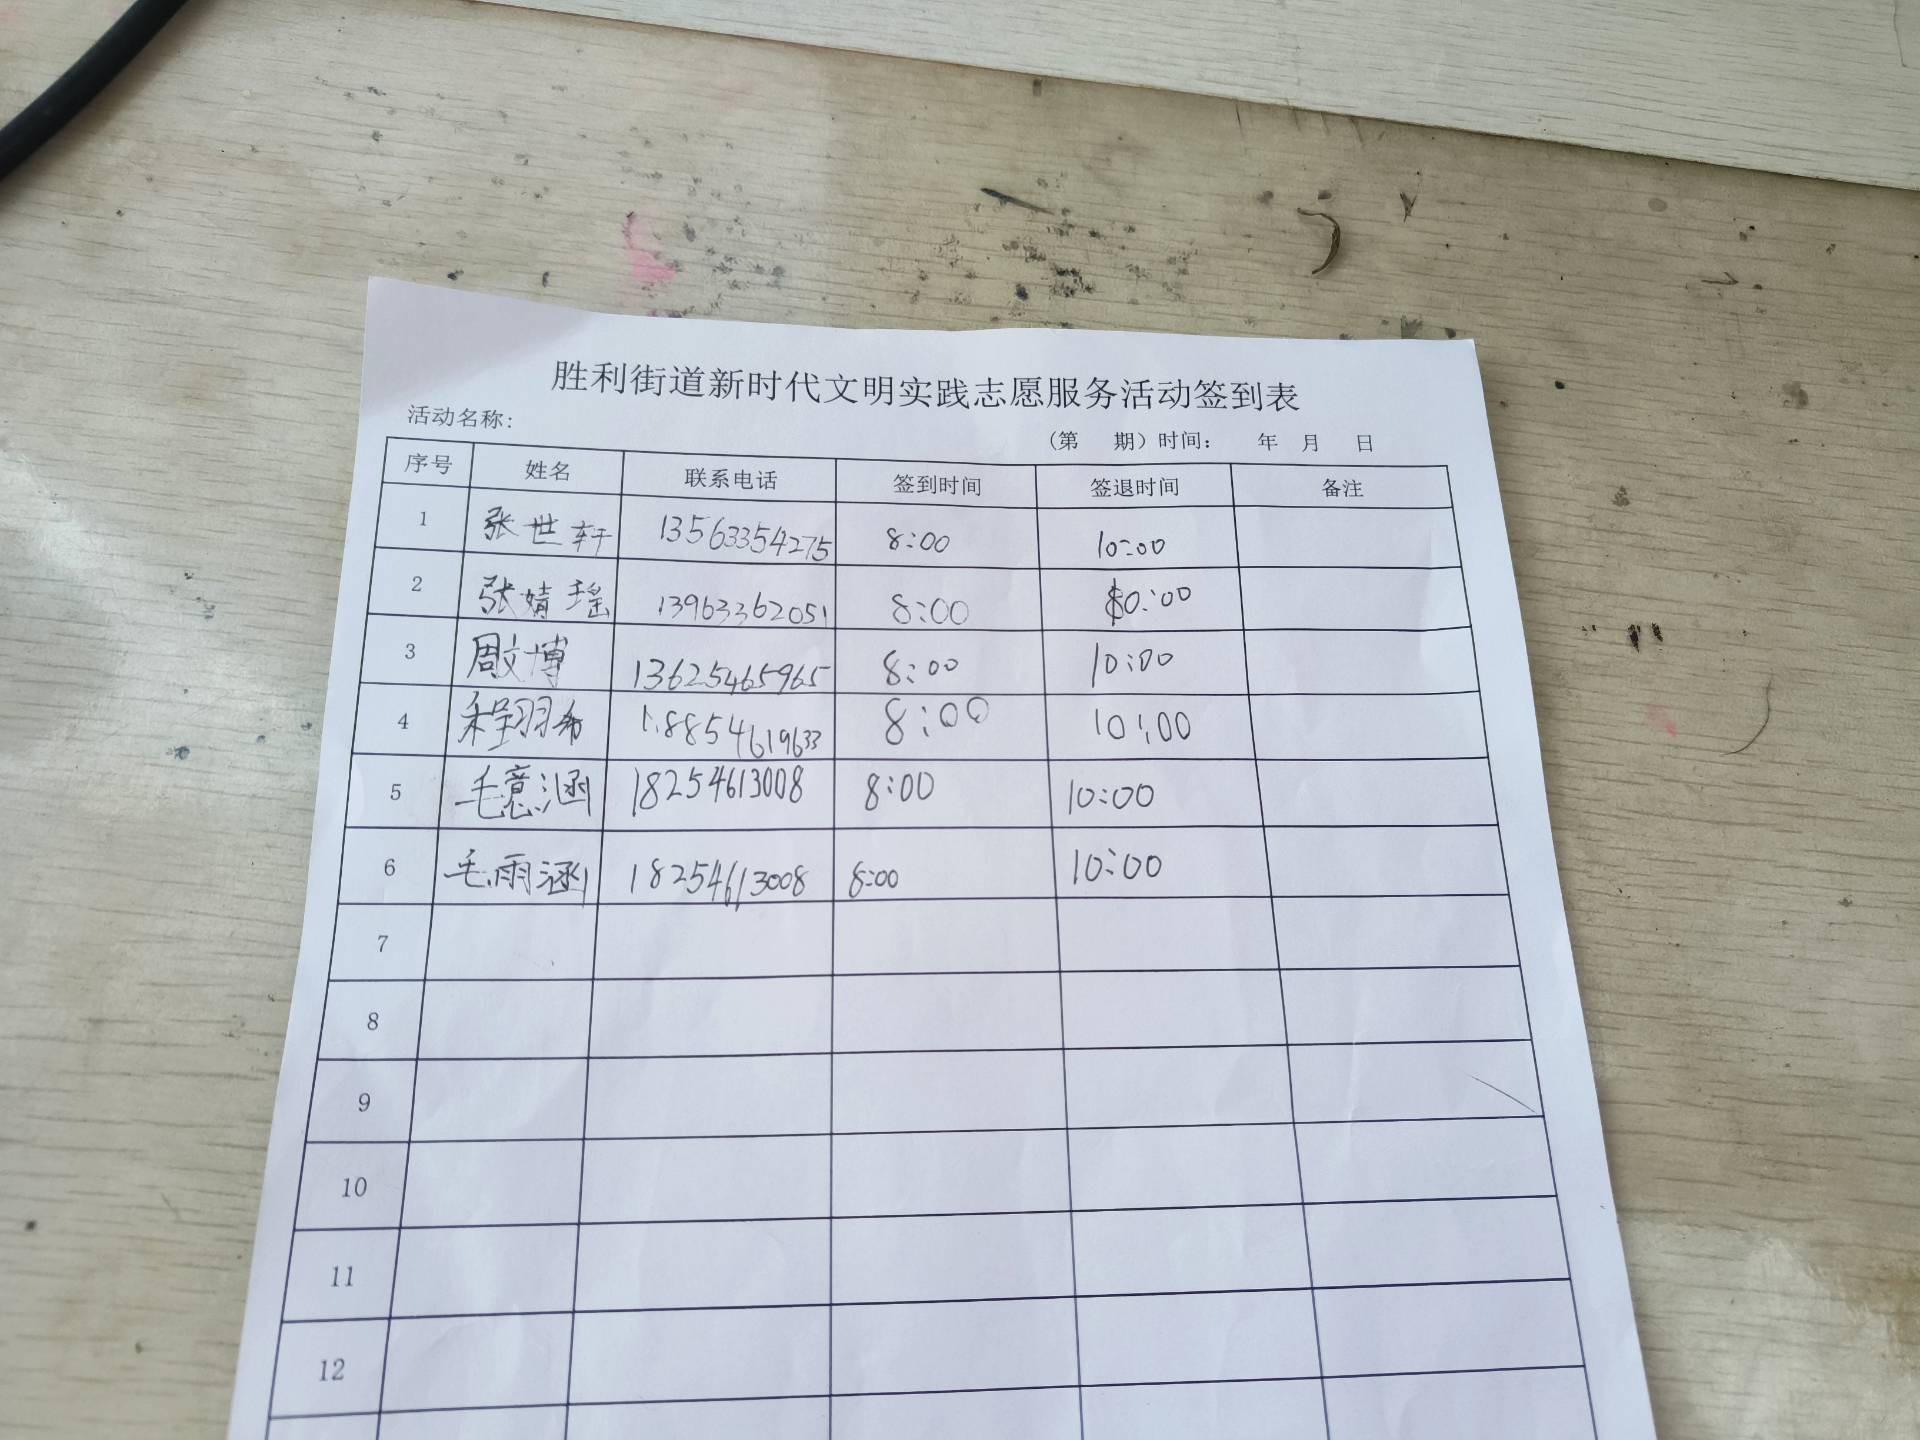 胜利街道新时代文明实践志愿服务活动签到表
活动名称:
（第 期）时间: 年 月 日
序号 姓名 联系电话 签到时间 签退时间 备注
1 张世轩 13563354275 8:00 10:00
2 张婧瑶 13963362051 8:00 10:00
3 周文博 13625465965 8:00 10:00
4 程羽希 18854619633 8:00 10:00
5 毛意涵 18254613008 8:00 10:00
6 毛雨涵 18254613008 8:00 10:00
7
8
9
10
11
12